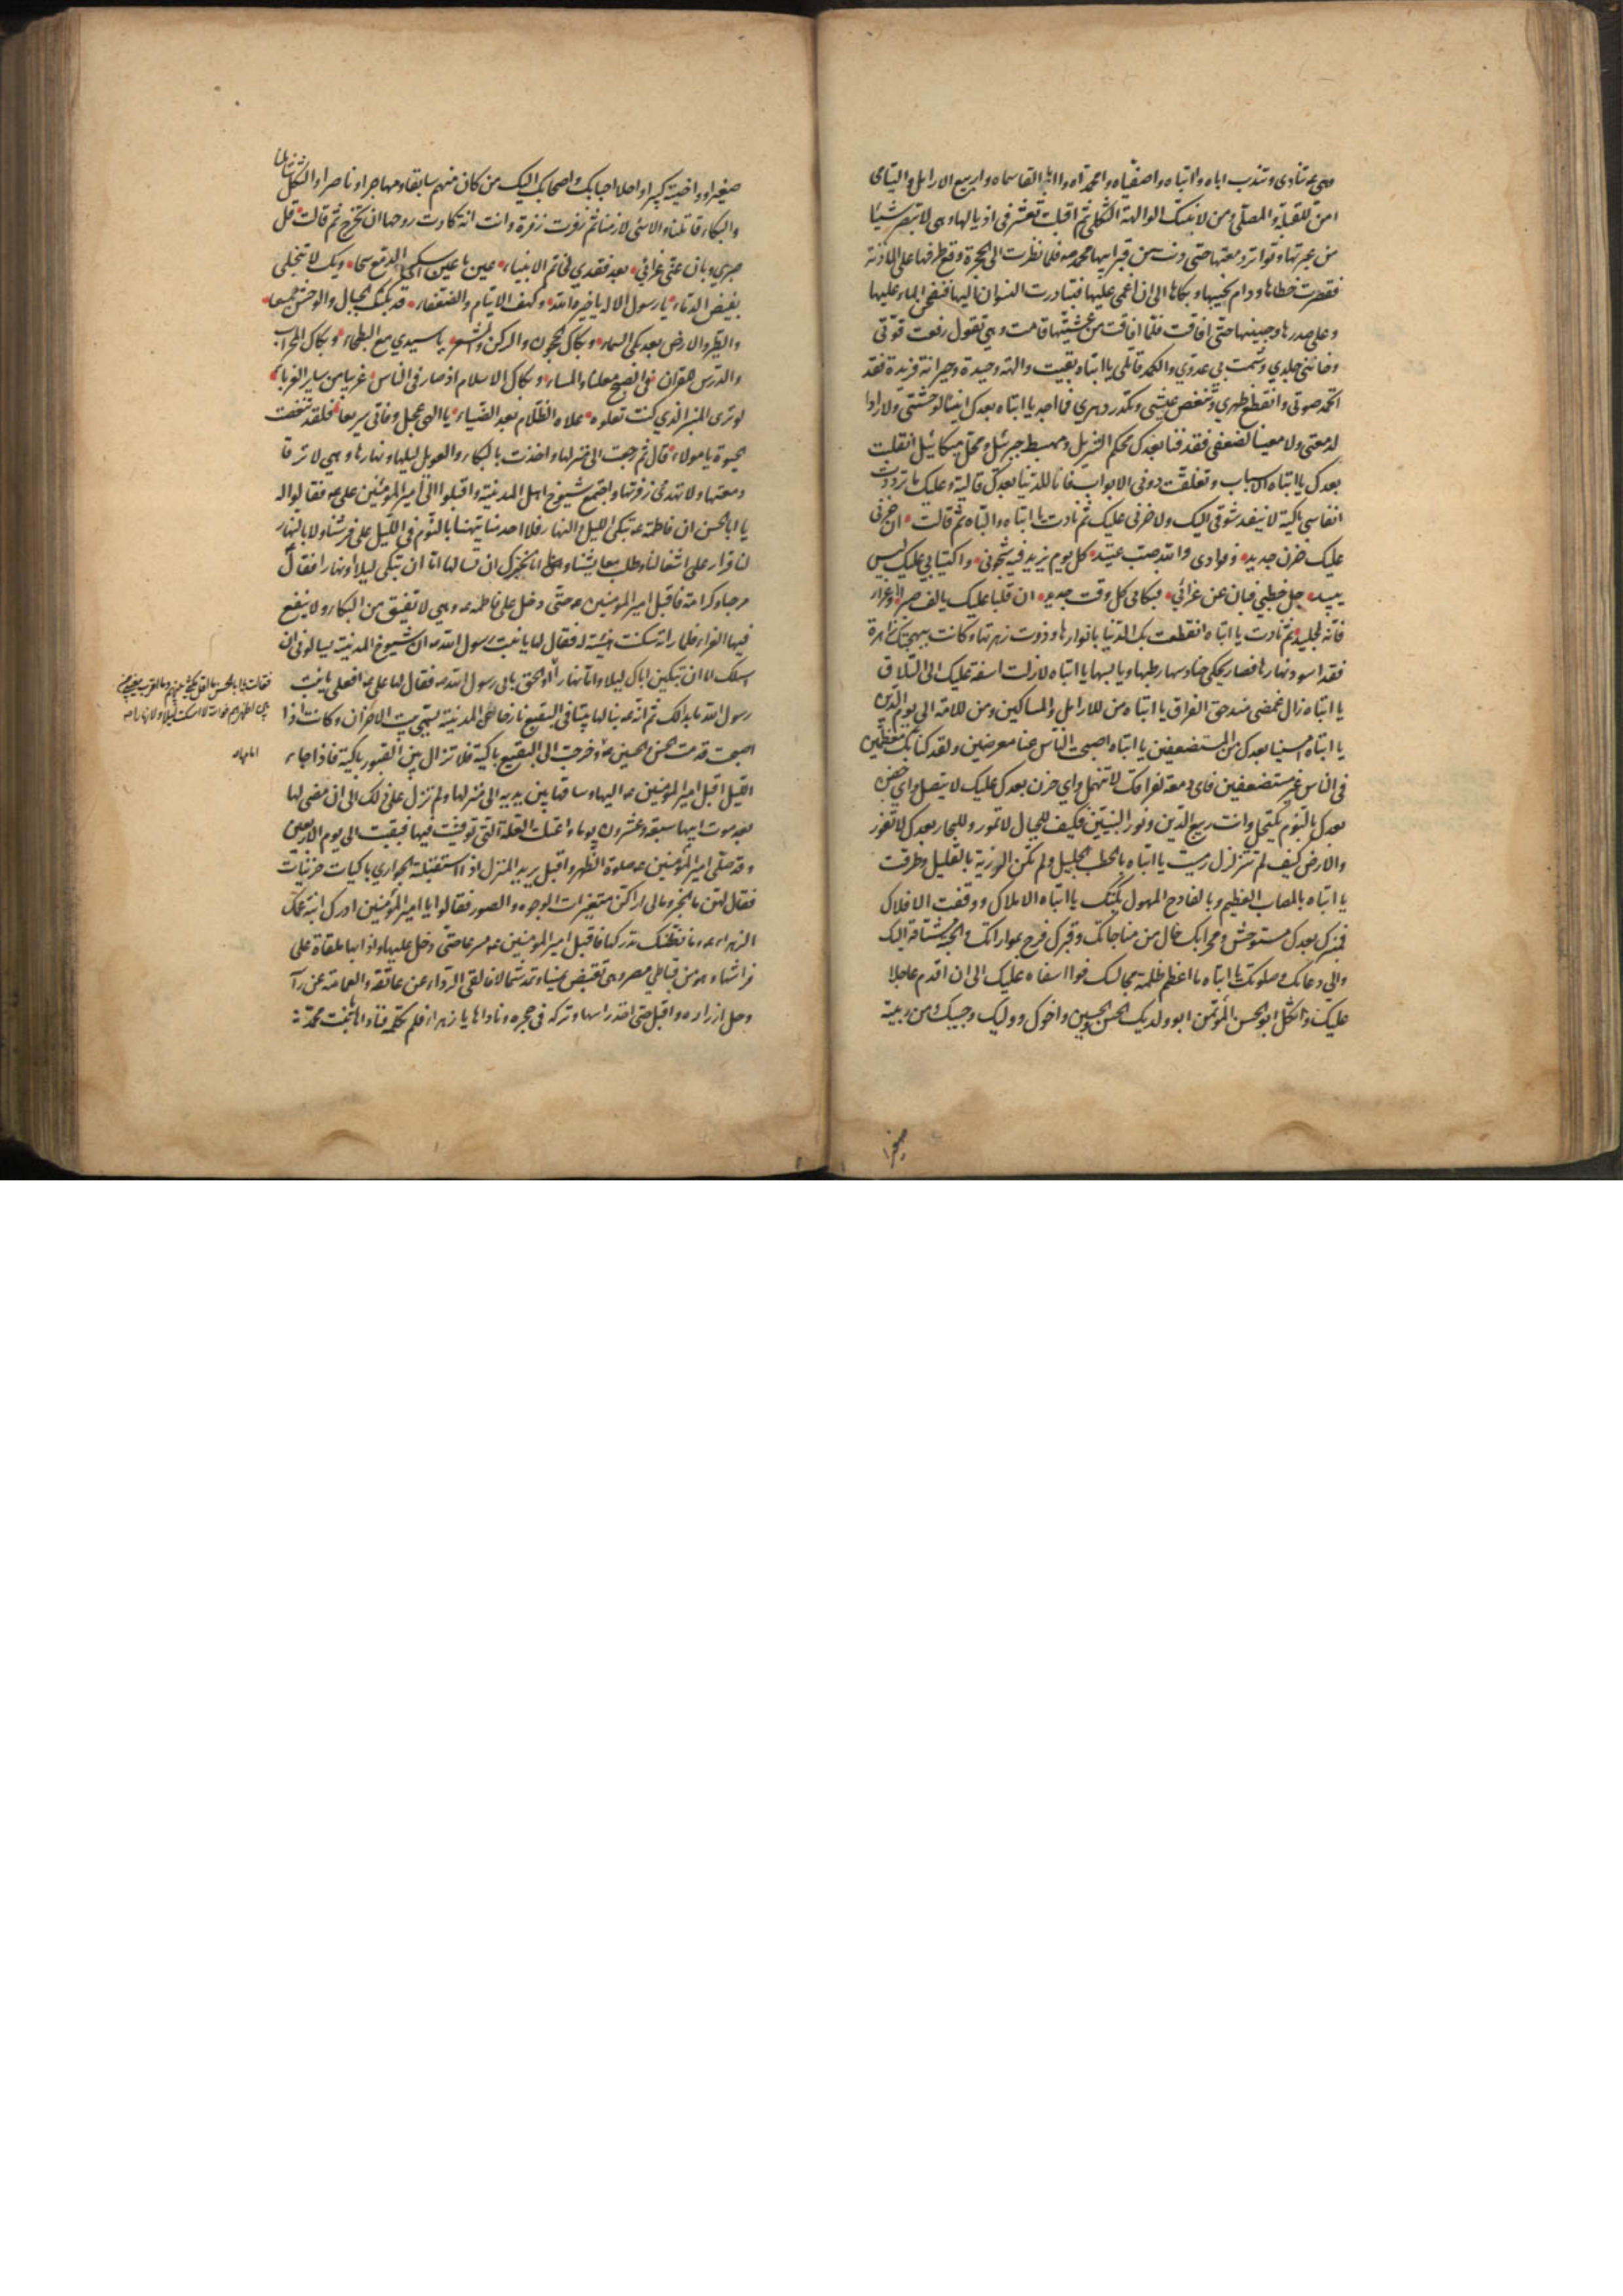 وهي ع تنادي وتندب اباه وا ابتاه وا صفياه وا محمداه وا ابا القاسماه وا ربيع الارامل واليتامى
من للقبلة والمصلى ومن لابنتك الوالهة الثكلى ثم اقبلت تعثر في اذيالها وهي لا تبصر شيئا
من عبرتها وتواتر دمعتها حتى دنت من قبر ابيها محمد ص فلما نظرت الى الحجرة وقع طرفها على الماذنة
فقصرت خطاها ودام نحيبها وبكاها الى ان اغمي عليها فتبادرت النسوان اليها فنضحن الماء عليها
وعلى صدرها وجبينها حتى افاقت فلما افاقت من غشيتها قامت وهي تقول رفعت قوتي
وخانني جلدي وشمت بي عدوي والكمد قاتلي يا ابتاه بقيت والهة وحيدة وحيرانة فريدة فقد
انخمد صوتي وانقطع ظهري وتنغص عيشي وتكدر دهري فما اجد يا ابتاه بعدك انيسا لوحشتي ولا رادا
لدمعتي ولا معينا لضعفي فقد فنا بعدك محكم التنزيل ومهبط جبرئيل ومحل ميكائيل انقلبت
بعدك يا ابتاه الاسباب وتغلقت دوني الابواب فانا للدنيا بعدك قالية وعليك ما ترددت
انفاسي باكية لا ينفد شوقي اليك ولا حزني عليك ثم نادت يا ابتاه والباه ثم قالت ان حزني
عليك حزن جديد وفوادي والله صب عنيد كل يوم يزيد فيه شجوني واكتيابي عليك ليس
يبيد جل خطبي فبان عني عزائي فبكائي كل وقت جديد ان قلبا عليك يالف صبرا او عزاء
فانه لجليد ثم نادت يا ابتاه انقطعت بك الدنيا بانوارها وذوت زهرتها وكانت ببهجتك زاهرة
فقد اسود نهارها فصار يحكي حنادسها رطبها ويابسها يا ابتاه لازلت اسفة عليك الى التلاق
يا ابتاه زال غمضي منذ حق الفراق يا ابتاه من للارامل والمساكين ومن للامة الى يوم الدين
يا ابتاه امسينا بعدك من المستضعفين يا ابتاه اصبحت الناس عنا معرضين ولقد كنا بك معظمين
في الناس غير مستضعفين فاي دمعة لفراقك لا تنهمل واي حزن بعدك عليك لا يتصل واي جفن
بعدك بالنوم يكتحل وانت ربيع الدين ونور النبيين فكيف للجبال لا تمور وللبحار بعدك لا تغور
والارض كيف لم تتزلزل رميت يا ابتاه بالخطب الجليل ولم تكن الرزية بالقليل وطرقت
يا ابتاه بالمصاب العظيم وبالفادح المهول بكتك يا ابتاه الاملاك ووقفت الافلاك
فمنبرك بعدك مستوحش ومحرابك خال من مناجاتك وقبرك فرح بمواراتك والجنة مشتاقة اليك
والى دعائك وصلوتك يا ابتاه ما اعظم ظلمة مجالسك فوا اسفاه عليك الى ان اقدم عاجلا
عليك واثكل ابو الحسن المؤتمن ابو ولديك الحسن والحسين واخوك ووليك وحبيبك ومن ربيته
صغيرا
صغيرا وواخيته كبيرا واحلا احبابك واصحابك اليك من كان منهم سابقا ومهاجرا وناصرا والثكل شاملنا
والبكاء قاتلنا والاسى لازمنا ثم زفرت زفرة وانت انة كادت روحها ان تخرج ثم قالت قل
صبري وبان عني عزائي بعد فقدي لخاتم الانبياء عين يا عين اسكبي الدمع سحا ويك لا تبخلي
بفيض الدماء يا رسول الاله يا خيرة الله وكهف الايتام والضعفاء قد بكتك الجبال والوحش جمعا
والطير والارض بعد بكي السماء وبكاك الحجون والركن والمشعر يا سيدي مع البطحاء وبكاك المحراب
والدرس للقران في الصبح معلنا والمساء وبكاك الاسلام اذ صار في الناس غريبا من ساير الغرباء
لو ترى المنبر الذي كنت تعلوه علاه الظلام بعد الضياء يا الهي عجل وفاتي سريعا فلقد تنغصت
الحيوة يا مولاء قال ثم رجعت الى منزلها واخذت بالبكاء والعويل ليلها ونهارها وهي لا ترقا
دمعتها ولا تهدى زفرتها واجتمع شيوخ اهل المدينة واقبلوا الى امير المؤمنين علي ع فقالوا له
يا ابا الحسن ان فاطمة ع تبكي الليل والنهار فلا احد منا يتهنا بالنوم في الليل على فرشنا ولا بالنهار
لنا قرار على اشغالنا وطلب معايشنا وانا نخبرك ان تسالها اما ان تبكي ليلا او نهارا فقال
مرحبا وكرامة فاقبل امير المؤمنين ع حتى دخل على فاطمة ع وهي لا تفيق من البكاء ولا ينفع
فيها العزاء فلما راته سكنت هنيئة له فقال لها يا بنت رسول الله ص ان شيوخ المدينة يسالوني ان
اسئلك اما ان تبكين اباك ليلا واما نهارا او الحق بابي رسول الله ص فقال لها علي ع افعلي يا بنت
فقالت يا ابا الحسن ما اقل مكثي بينهم وما اقرب مغيبي من
بين اظهرهم فوالله لا اسكت ليلا ولا نهارا
رسول الله ما بدالك ثم انه ع بنا لها بيتا في البقيع نازحا عن المدينة يسمى بيت الاحزان وكانت اذا
اصبحت قدمت الحسن والحسين ع وخرجت الى البقيع باكية فلا تزال بين القبور باكية فاذا جاء
الليل اقبل امير المؤمنين ع اليها وساقها بين يديه الى منزلها ولم تزل على ذلك الى ان مضى لها
بعد موت ابيها سبعة وعشرون يوما واعتلت العلة التي توفيت فيها فبقيت الى يوم الاربعين
وقد صلى امير المؤمنين ع صلوة الظهر واقبل يريد المنزل اذا استقبلته الجواري باكيات حزينات
فقال لهن ما الخبر وما لي اراكن متغيرات الوجوه والصور فقالوا يا امير المؤمنين ادرك ابنة عمك
الزهراء ع وما نظنك تدركها فاقبل امير المؤمنين ع مسرعا حتى دخل عليها واذا بها ملقاة على
فراشها وهو من قباطي مصر وهي تقبض يمينا وتمد شمالا فالقى الرداء عن عاتقه والعمامة عن راسه
وحل ازراره واقبل حتى اخذ راسها وتركه في حجره وناداها يا زهراء فلم تكلمه فناداها يا بنت محمد